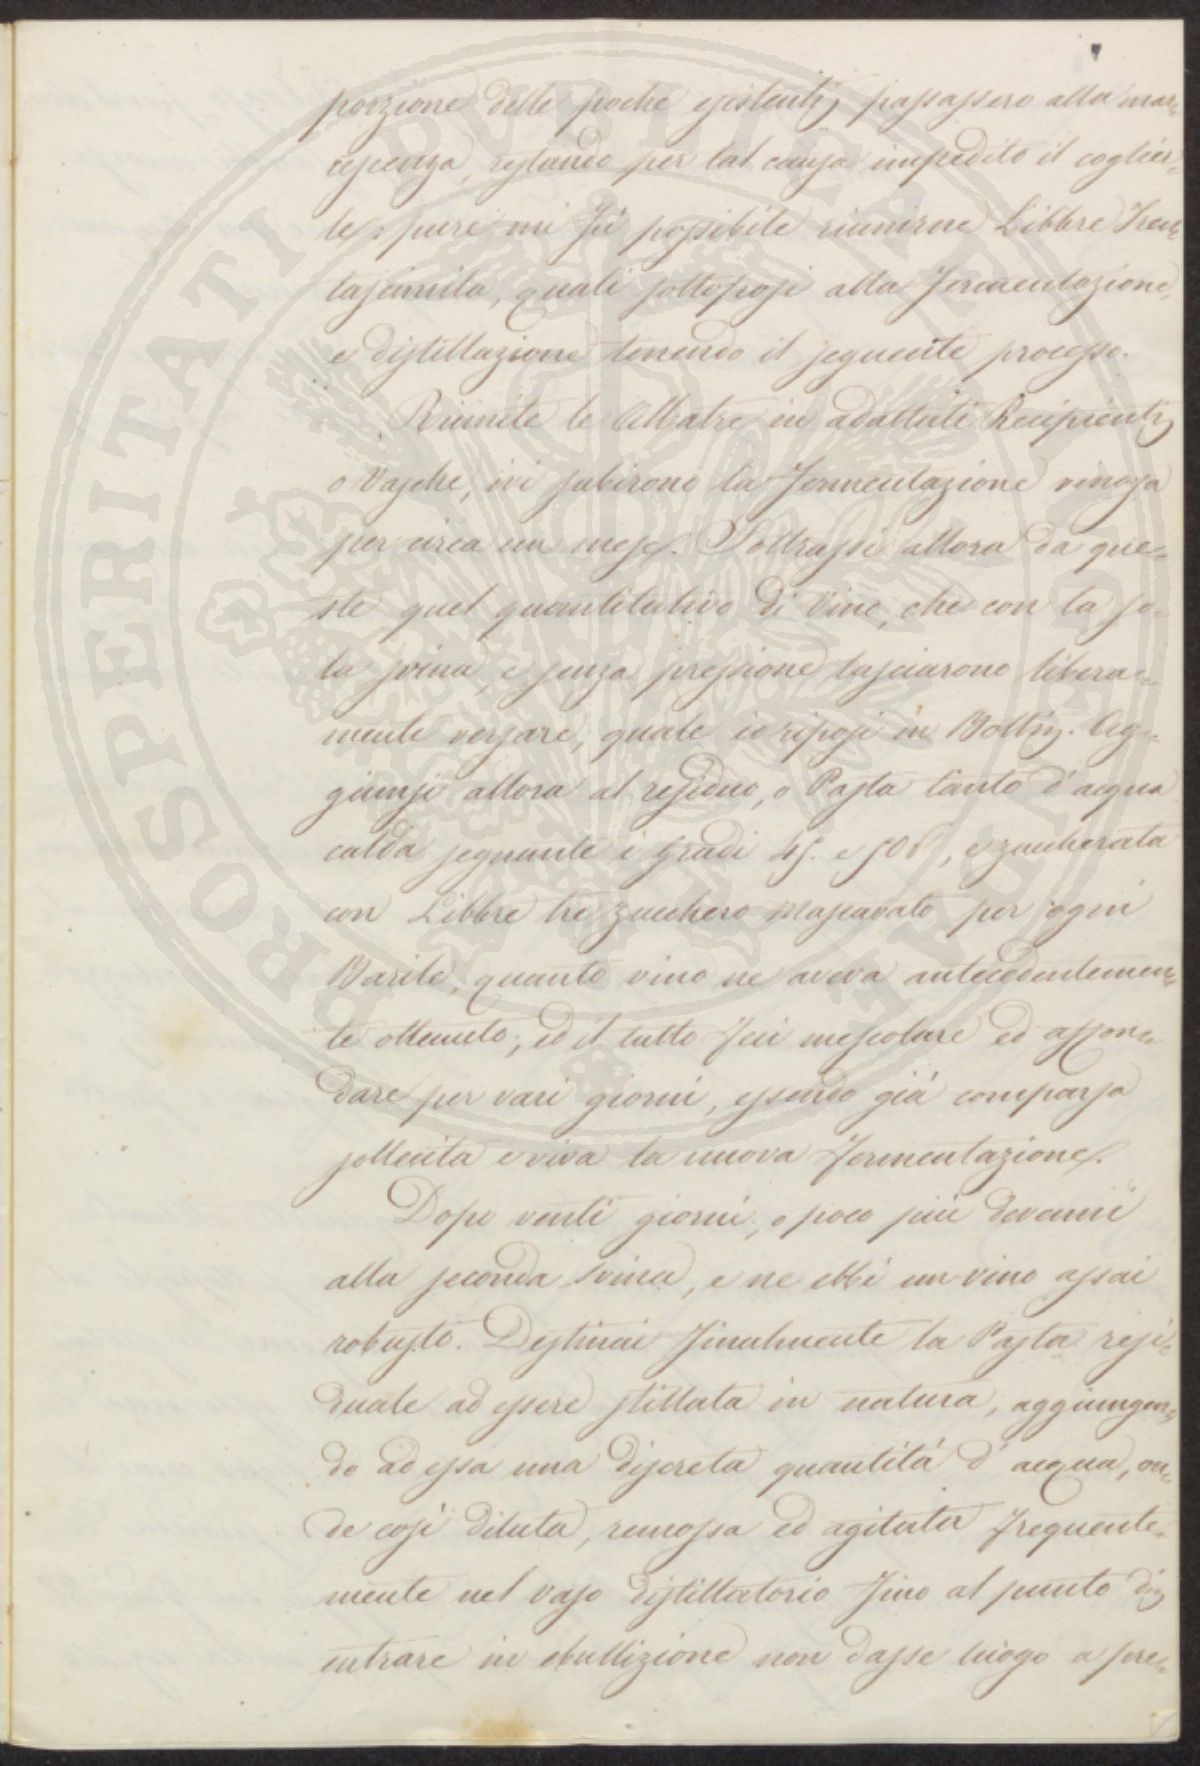 porzione delle poche esistenti passassero alla mar=
cescenza, restando per tal causa impedito il coglier=
le: pure mi fù possibile riunirne Libbre Tren=
taseimila, quali sottoposi alla fermentazione,
e distillazione tenendo il seguente processo.
Riunite le Albatre in adattati Recipienti
o Vasche, ivi subirono la fermentazione vinosa
per circa un mese. Sottrassi allora da que=
ste quel quantitativo di Vino, che con la so=
la svina, e senza pressione lasciarono libera=
mente versare, quale io riposi in Botti. Ag=
giunsi allora al residuo, o Pasta tanto d'acqua
calda segnante i Gradi 45. e 50, e zuccherata
con Libbre tre zucchero mascavato per ogni
Barile, quanto vino ne aveva antecedentemen=
te ottenuto; ed il tutto feci mescolare ed affon=
dare per vari giorni, essendo già comparsa
sollecita e viva la nuova fermentazione.
Dopo venti giorni, o poco più devenni
alla seconda svina, e ne ebbi un vino assai
robusto. Destinai finalmente la Pasta resi=
duale ad essere stillata in natura, aggiungen=
do ad essa una discreta quantità d'acqua, on=
de così diluta, remossa ed agitata frequente=
mente nel vaso distillatorio fino al punto di
entrare in ebullizione non dasse luogo a pre=
PROSPERITATI PUBLICAE AUGENDAE